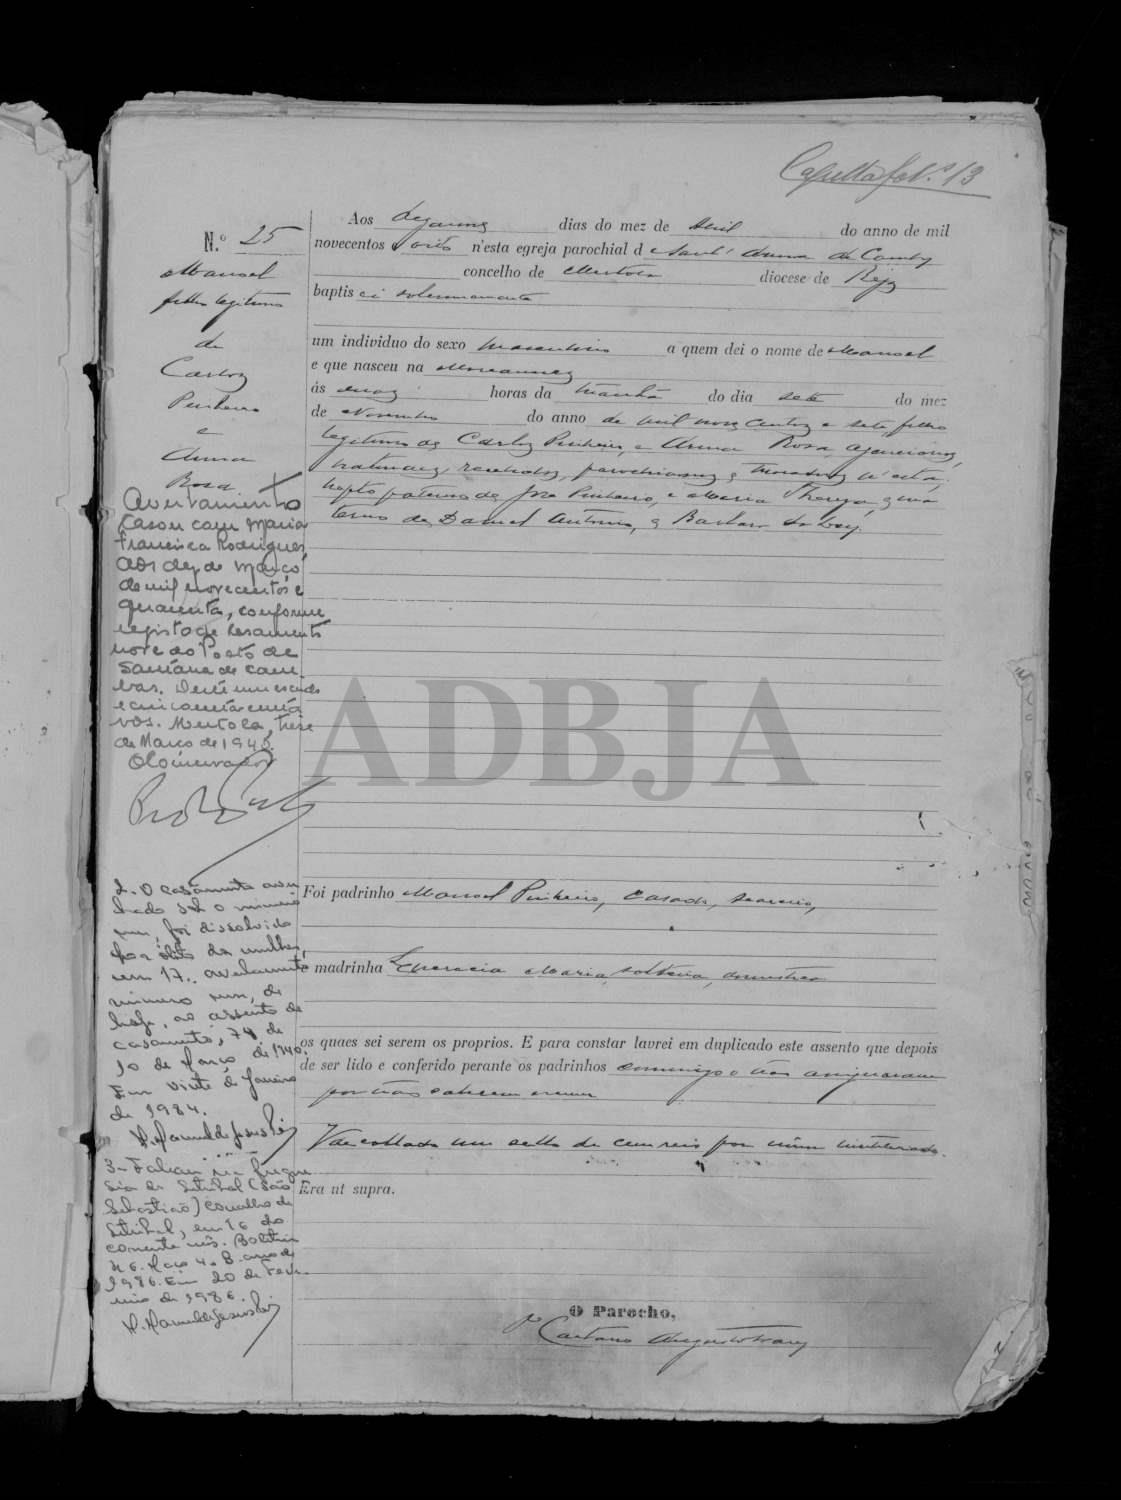 Capella fol. 13
N.º 25
Manoel
filho legitimo
de
Carlos
Pinheiro
e
Anna
Rosa
Aos dezanove dias do mez de Abril do anno de mil
novecentos e oito n'esta egreja parochial de Sant'Anna de Cambas
concelho de Mertola diocese de Beja
baptisei solemnemente
um individuo do sexo masculino a quem dei o nome de Manoel
e que nasceu na
ás horas da manhã do dia sete do mez
de Novembro do anno de mil nove centos e sete, filho
legitimo de Carlos Pinheiro, e Anna Rosa
naturaes, recebidos, parochianos e moradores n'esta,
neto paterno de José Pinheiro, e Maria Thereza, e ma
terno de Daniel Antonio, e Barbara
Foi padrinho Manoel Pinheiro, casado, seareiro,
e madrinha Maria, solteira, domestica
os quaes sei serem os proprios. E para constar lavrei em duplicado este assento que depois
de ser lido e conferido perante os padrinhos commigo o não assignaram
por não saberem escrever
Vae collado um sello de cem reis por mim inutilisado.
Era ut supra.
O Parocho,
Caetano Augusto
Averbamento
Casou com Maria
Francisca Rodrigues,
aos dez de Março
de mil novecentos e
quarenta, conforme
registo de casamento
nove do Posto de
Santana de Cam
bas. Desta um escudo
e cincoenta centa
vos. Mertola, treze
de Março de 1940.
O Conservador
2- O casamento aver
bado sob o numero
um, foi dissolvido
por obito da mulher,
numero um, de
hoje, ao assento de
casamento, 74, de
10 de Março de 1940.
Em vinte de Janeiro
de 1984.
3- Faleceu na fregue
sia de Setubal (São
Sebastião) concelho de
Setubal, em 16 do
corrente mês. Boletim
nº 6. Maço 4.
1986. Em 20 de Feve
reiro de 1986.
ADBJA